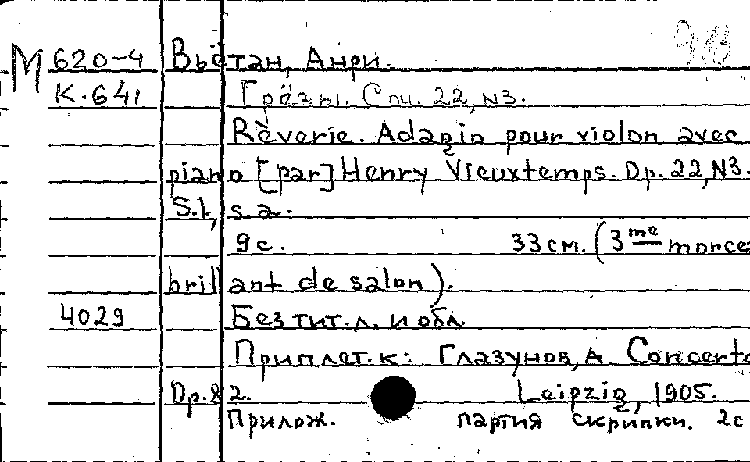 М 620-4 Вьётан, Анри.
К.641 Грёзы. Соч. 22, №3.
Rêverie. Adagio pour violon avec
piano [par] Henry Vieuxtemps. Op. 22, N3.
S.l, s.a.
9с. 33см. (3me morce
brillant de salon).
4029 Без тит.л. и обл
Приплет.к: Глазунов, А. Concerto
Op.82. Leipzig, 1905.
Прилож. партия скрипки. 2с